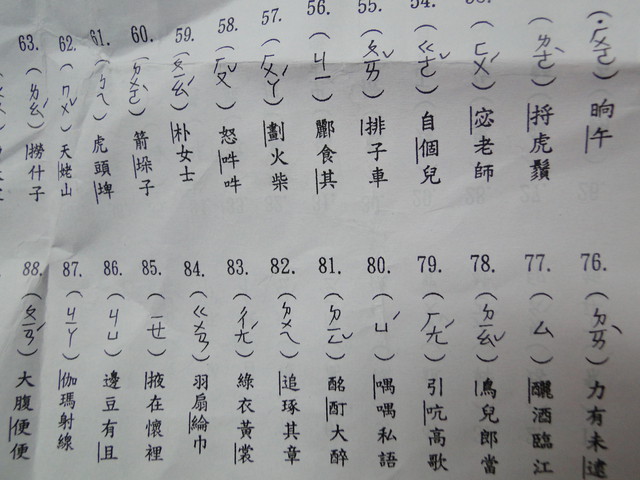 晌午
捋虎鬚
53. (ㄈㄨˊ) 宓老師
54. (ㄍㄜˇ) 自個兒
55. (ㄆㄞˇ) 排子車
56. (ㄐㄧ) 酈食其
57. (ㄏㄨㄚˊ) 劃火柴
58. (ㄏㄡˇ) 怒吽吽
59. (ㄆㄧㄠˊ) 朴女士
60. (ㄉㄨㄛˋ) 箭垛子
61. (ㄅㄟ) 虎頭埤
62. (ㄇㄨˇ) 天姥山
63. (ㄌㄠˊ) 撈什子
76. (ㄉㄞˋ) 力有未逮
77. (ㄙ) 釃酒臨江
78. (ㄉㄧㄠˇ) 鳥兒郎當
79. (ㄏㄤˊ) 引吭高歌
80. (ㄩˊ) 喁喁私語
81. (ㄉㄧㄥˇ) 酩酊大醉
82. (ㄉㄨㄟ) 追琢其章
83. (ㄔㄤˊ) 綠衣黃裳
84. (ㄍㄨㄢ) 羽扇綸巾
85. (ㄧㄝ) 掖在懷裡
86. (ㄐㄩ) 邊豆有且
87. (ㄐㄧㄚ) 伽瑪射線
88. (ㄆㄧㄢˊ) 大腹便便